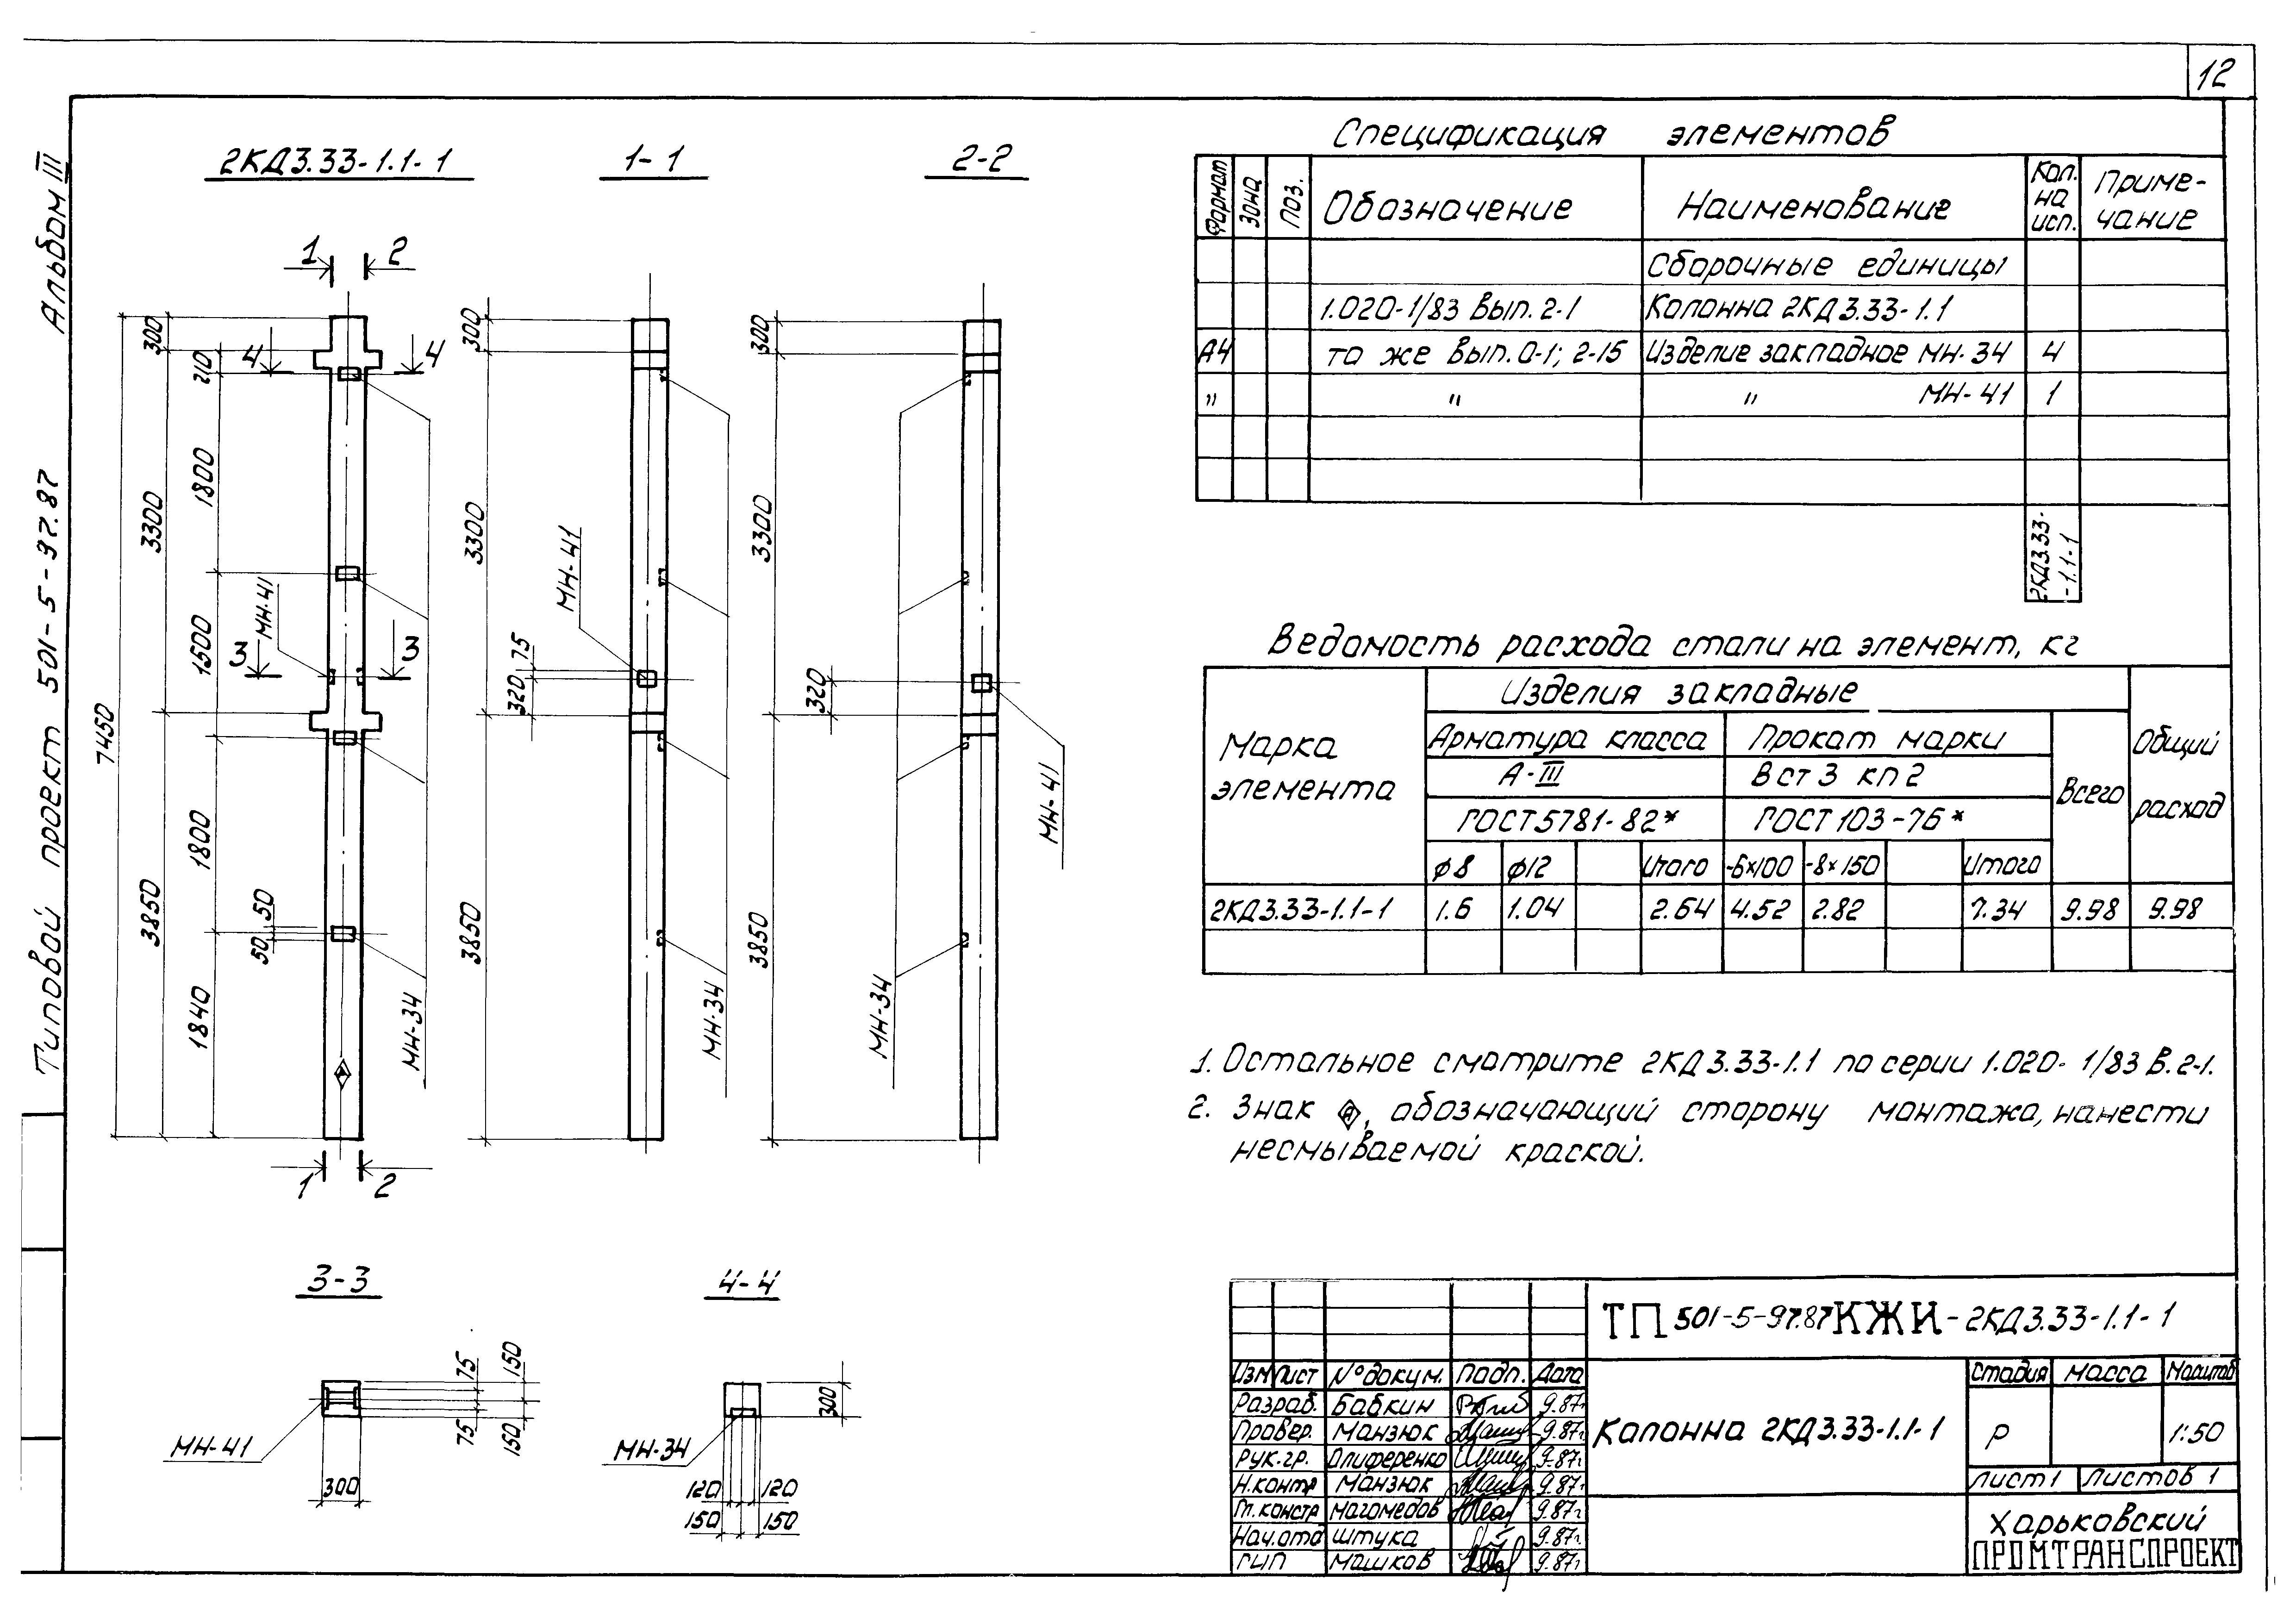 12
Альбом III
Типовой проект 501-5-97.87
2КД3.33-1.1-1
1-1
2-2
1 2
300
210
4 4
1800
3300
1500
МН-41
3 3
7450
1800
3850
50
50
1840
МН-34
1 2
300
3300
МН-41
75
320
3850
МН-34
300
3300
320
3850
МН-34
МН-41
3-3
75
150
75
150
МН-41
300
4-4
300
МН-34
120 120
150 150
Спецификация элементов
Формат Зона Поз. Обозначение Наименование Кол. на исп. Приме-чание
Сборочные единицы
1.020-1/83 Вып. 2-1 Колонна 2КД3.33-1.1
А4 то же Вып. 0-1; 2-15 Изделие закладное МН-34 4
" " " МН-41 1
2КД3.33-
-1.1-1
Ведомость расхода стали на элемент, кг
Марка элемента
Изделия закладные
Общий расход
Арматура класса Прокат марки
А-III Вст3 кп2
Всего
ГОСТ 5781-82* ГОСТ 103-76*
ф8 ф12 Итого -6х100 -8х150 Итого
2КД3.33-1.1-1 1.6 1.04 2.64 4.52 2.82 7.34 9.98 9.98
1. Остальное смотрите 2КД3.33-1.1 по серии 1.020-1/83 В.2-1.
2. Знак , обозначающий сторону монтажа, нанести
несмываемой краской.
ТП 501-5-97.87 КЖИ-2КД3.33-1.1-1
Изм Лист № докум. Подп. Дата
Разраб. Бабкин 9.87г
Провер. Манзюк 9.87г.
Рук.гр. Олиференко 9.87г
Н.контр Манзюк 9.87г.
Гл.констр Магомедов 9.87г.
Нач.отд Штука 9.87г.
ГИП Машков 9.87г.
Колонна 2КД3.33-1.1-1
Стадия Масса Масштаб
Р 1:50
Лист 1 Листов 1
Харьковский
ПРОМТРАНСПРОЕКТ